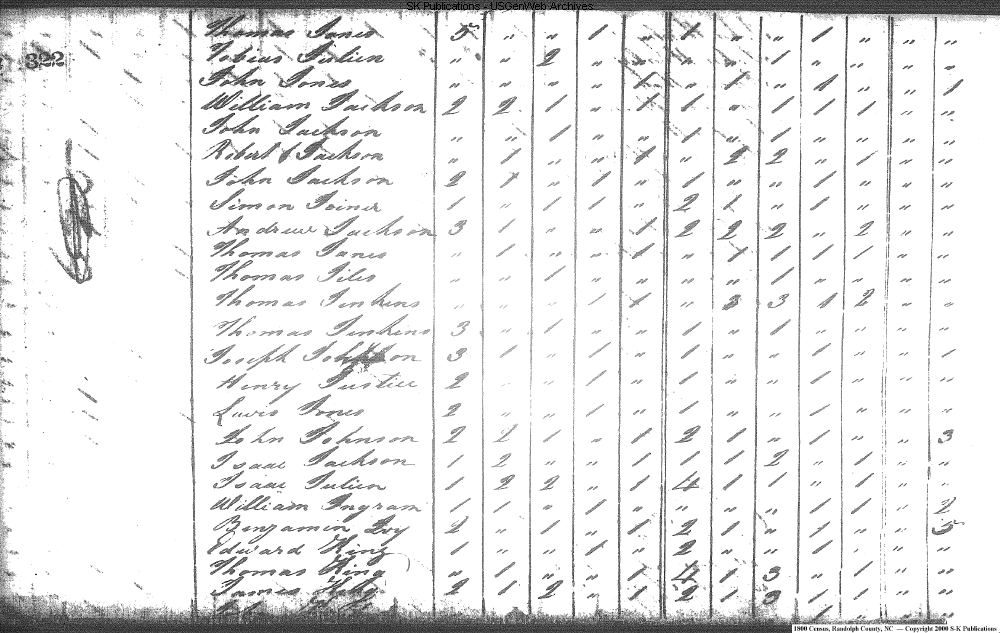 SK Publications - USGenWeb Archives
322
Thomas Jones 5 " " 1 " 1 " " 1 " " "
Tobias Julien " " 2 " " " " 1 " " " "
John Jones " " " " 1 " 1 " 1 " " 1
William Jackson 2 2 1 " 1 1 " 1 1 1 " "
John Jackson " " 1 " " 1 " 1 " " " "
Robert Jackson " 1 " " 1 " 2 2 " 1 " "
John Jackson 2 1 " 1 " 1 " " 1 " " "
Simon Joiner 1 " 1 1 " 2 1 " 1 " " "
Andrew Jackson 3 1 " " 1 2 2 2 " 2 " "
Thomas Janes " 1 " " 1 " 1 1 1 1 " "
Thomas Jiles " " 1 " " " " 1 " " " "
Thomas Jenkins " " " 1 1 " 3 3 1 2 " "
Thomas Jenkins 3 " 1 " " 1 " 1 " " " "
Joseph 3 1 " 1 " 1 " " 1 " " 1
Henry Justice 2 " 1 " 1 " " 1 " " "
Lewis Jones 2 " " 1 " 1 " " 1 " " "
John Johnson 2 2 1 " 1 2 1 " 1 " " 3
Isaac Jackson 1 2 " " 1 1 1 2 " 1 " "
Isaac Julien 1 2 2 " 1 4 1 1 " 1 " "
William Ingram 1 1 " 1 " " " " 1 " " 2
Benjamin Ivy 2 " 1 " 1 2 1 " 1 " " 5
Edward King 1 " " 1 " 2 " " 1 " " "
Thomas King " 1 " " 1 4 1 3 " 1 " "
James 2 1 2 " 1 2 1 3 " 1 " "
1800 Census, Randolph County, NC — Copyright 2000 S-K Publications